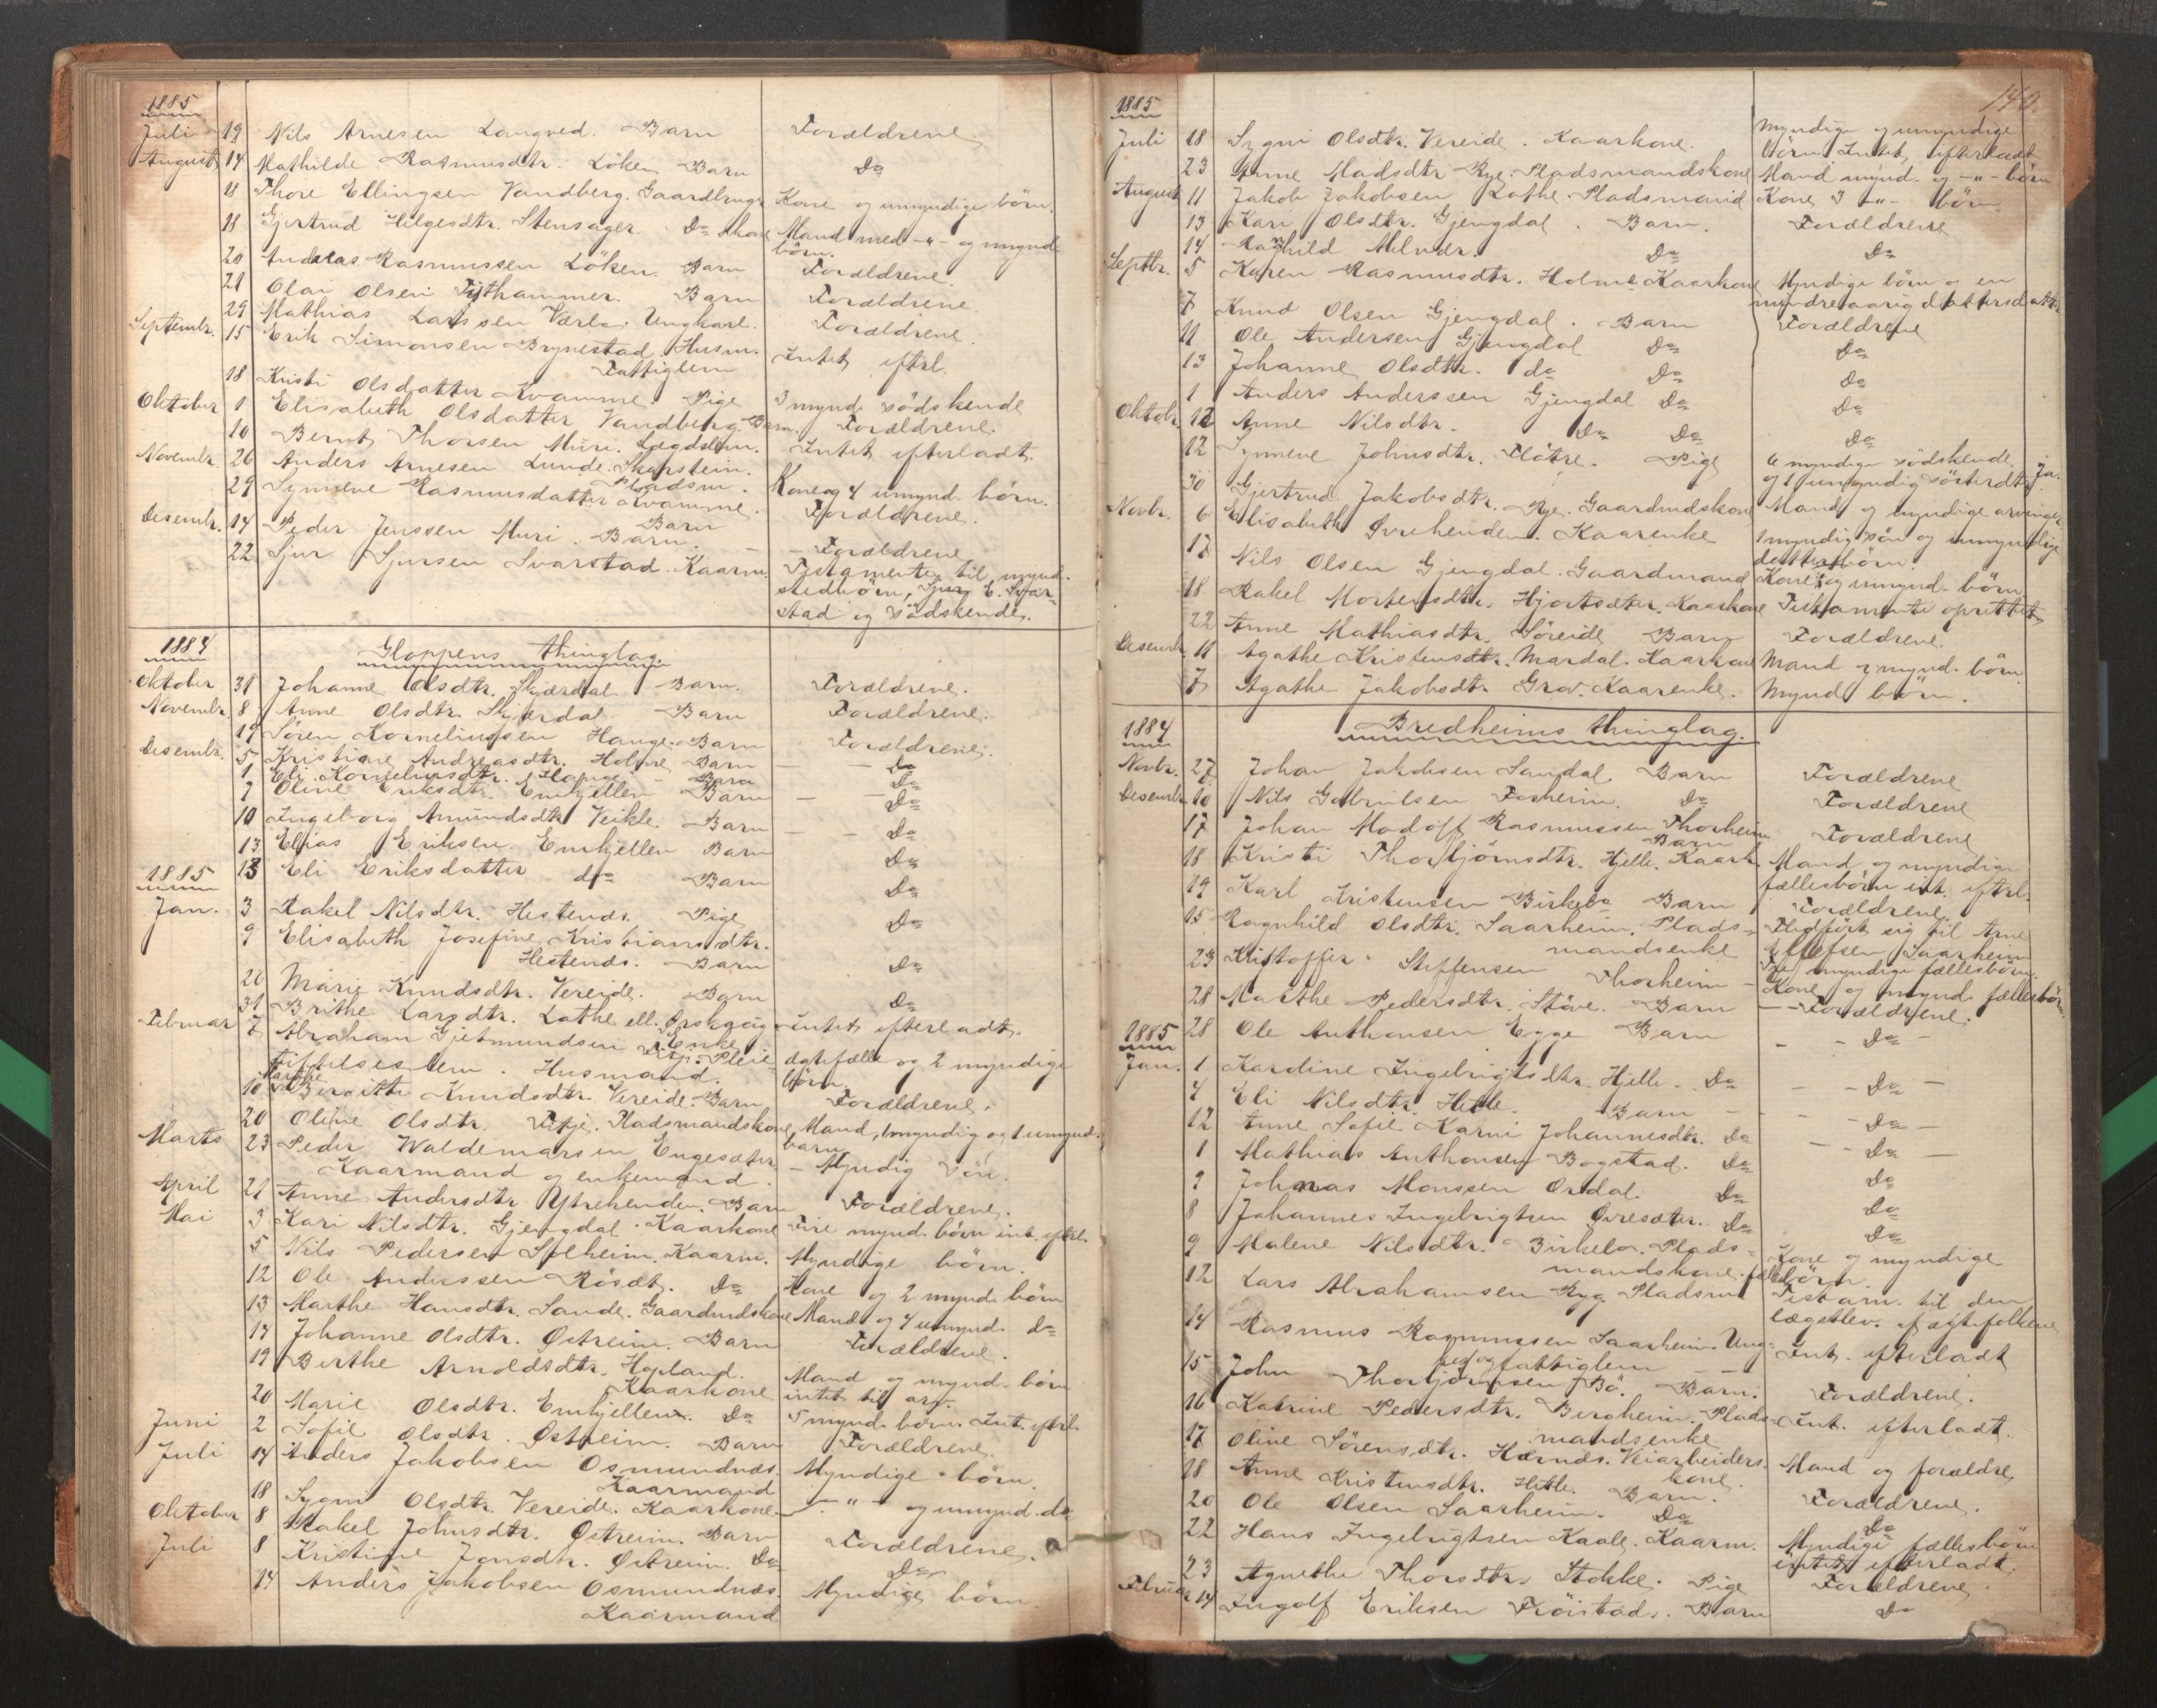 1885
Juli 19 Nils Arnesen Langved. Barn Forældrene.
August 14 Mathilde Rasmusdtr. Löken Barn Do
11 Thore Ellingsen Vandberg. Gaardbrugr Kone og umyndige börn.
18 Gjertrud Helgesdtr. Stensager. Do kone Mand med -"- og mynd.
börn.
20 Andreas Rasmussen Löken. Barn Forældrene.
21 Olai Olsen Barn Forældrene.
29 Mathias Larssen Ungkarl. Forældrene.
Septembr. 15 Erik Simonsen Brynestad. Husm. Intet eftrl.
Fattiglem
18 Kristi Olsdatter Kvamme. Pige 3 mynd. södskende
Oktober 1 Elisabeth Olsdatter Vandberg. Barn. Forældrene.
10 Bernt Thorsen Muri. Lægdslem. Intet efterladt.
Novembr. 26 Anders Arnesen Lunde. Skarstein. Kone og 4 umynd. börn.
Pladsm.
29 Synneve Rasmusdatter Kvamme. Forældrene.
Barn
Desembr. 14 Peder Jenssen Muri. Barn. Forældrene
22 Sjur Sjursen Svarstad. Kaarm. Testamente til mynd.
stedbörn, Sjur E. Svar-
stad og södskende.
1884 Gloppens thinglag.
Oktober 31 Johanne Olsdtr. Skjærdal. Barn. Forældrene.
Novembr. 8 Anne Olsdtr. Skjerdal. Barn Forældrene.
19 Sören Korneliussen Hauge. Barn Forældrene.
Desembr. 5 Kristiane Andreasdtr. Holme Barn Do
1 Eli Korneliusdtr. Hauge Barn Do
2 Oline Eriksdtr. Emhjellen Barn Do
10 Ingeborg Amundsdtr Veikle. Barn Do
13 Elias Eriksen. Emhjellen Barn Do
1885 13 Eli Eriksdatter do Barn Do
Jan. 3 Rakel Nilsdtr. Hestenes. Pige Do
9 Elisabeth Josefine Kristiansdtr.
Hestenes. Barn Do
26 Marie Knudsdtr. Vereide. Barn Do
31 Brithe Larsdtr. Lothe ell. Intet efterladt.
Enke
Februar 7 Abraham Gjetmundsen Pleie- ægtefælle og 2 myndige
stiftelseslem. Husmand. börn.
10 Marthe Beritte Knudsdtr. Vereide. Barn Forældrene.
20 Oline Olsdtr. Fitje. Pladsmandskone Mand, 1 myndig og 1 umynd.
barn
Marts 23 Peder Waldemarsen Engesæter Myndig Sön.
Kaarmand og enkemand.
April 21 Anne Andersdtr Ytrehenden. Barn Forældrene.
Mai 3 Kari Nilsdtr. Gjengdal. Kaarkone Fire mynd. börn int. eftrl.
5 Nils Pedersen Solheim. Kaarm. Myndige börn.
12 Ole Anderssen Rösæt. Do Kone og 2 mynd. börn
13 Marthe Hansdtr. Sande. Gaardmdskone Mand og 4 umynd. do
14 Johanne Olsdtr. Östreim. Barn Forældrene.
19 Berthe Arnoldsdtr. Hopland. Mand og mynd. börn
Kaarkone intet til arv.
20 Marie Olsdtr. Emhjellen. Do 5 mynd. börn. Int. eftrl.
Juni 2 Sofie Olsdtr. Östreim. Barn Forældrene.
Juli 14 Anders Jakobsen Osmundnæs. Myndige börn.
Kaarmand
18 Sygni Olsdtr. Vereide. Kaarkone. -"- og umynd. do
Oktober 8 Rakel Johnsdtr. Östreim. Barn Forældrene.
Juli 8 Kristine Jonsdtr. Östreim. Do Do
14 Anders Jakobsen Osmundnæs. Myndige börn.
Kaarmand
140.
1885
Juli 18 Sygni Olsdtr. Vereide. Kaarkone. Myndige og umyndige
börn. Intet efterladt
23 Anne Madsdtr Rye. Pladsmandskone Mand mynd. og -"- börn
August 11 Jakob Jakobsen Lothe. Pladsmand Kone 3 -"- börn.
13 Kari Olsdtr. Gjengdal. Barn. Forældrene
14 Ranhild Do Do
Septbr. 5 Karen Rasmusdtr. Holme Kaarkone Myndige börn og en
mindreaarig dattersdatter
7 Knud Olsen Gjengdal. Barn Forældrene
11 Ole Andersen Gjengdal Do Do
13 Johanne Olsdtr. do Do Do
1 Anders Anderssen Gjengdal Do Do
Oktob. 12 Anne Nilsdtr. Do Do Do
12 Synneve Johnsdtr. Flötre. Pige 6 myndige södskende
og 1 umyndig sösterdtr. Ja.
30 Gjertrud Jakobsdtr. Rye. Gaardmdskone Mand og myndige arvinger
Novbr. 6 Elisabeth Øvrehenden. Kaarenke 1 myndig sön og umyndige
datterbörn.
17 Nils Olsen Gjengdal. Gaardmand Kone og umynd. börn
18 Rakel Mortensdtr. Hjortsæter. Kaarkone Testamente oprettet
22 Anne Mathiasdtr. Söreide Barn Forældrene.
Desembr. 11 Agathe Kristensdtr. Mardal. Kaarkone Mand og mynd. börn.
7 Agathe Jakobsdtr. Grov. Kaarenke. Mynd. börn.
1884 Bredheims thinglag.
Novbr. 27 Johan Jakobsen Sandal. Barn Forældrene
Desembr. 10 Nils Gabrielsen Fosheim. Do Forældrene
17 Johan Madoff Rasmussen Thorheim Forældrene
Barn
18 Kristi Thorbjörnsdtr. Hjelle. Kaark. Mand og myndige
fællesbörn int. eftrl.
19 Karl Kristensen Birkelo Barn Forældrene.
15 Ragnhild Olsdtr. Saarheim. Plads- Fledfört sig til Arne
mandsenke Ellefsen Saarheim
23 Kristoffer Steffensen Thorheim Kone og mynd. fællesbörn.
28 Marthe Pedersdtr. Störe. Barn Forældrene.
1885 28 Ole Anthonsen Egge Barn Do
Jan. 1 Kardine Ingebrigtsdtr. Hjelle. Do Do
4 Eli Nilsdtr. Hetle. Barn Do
12 Anne Sofie Karni Johannesdtr. Do Do
1 Mathias Anthonsen Bogstad. Do Do
2 Johnas Monssen Ordal. Do Do
8 Johannes Ingebrigtsen Øvresæter. Do Do
9 Malene Nilsdtr. Birkelo. Plads- Kone og myndige
mandskone. fællesbörn.
12 Lars Abrahamsen Ryg. Pladsm. Testam. til den
længstlev. af ægtefolkene
14 Rasmus Rasmussen Saarheim. Ung- Int. efterladt
og fattiglem
15 John Thorbjörnsen Bö. Barn. Forældrene.
16 Katrine Pedersdtr. Bergheim. Plads- Int. efterladt.
mandsenke
17 Oline Sörensdtr. Hærnes. Veiarbeiders- Mand og forældre
kone.
18 Anne Kristensdtr. Hetle. Barn. Forældrene.
20 Ole Olsen Saarheim. Do Do
22 Hans Ingebrigtsen Kaale. Kaarm. Myndige fællesbörn
intet efterladt.
23 Agnethe Thorsdtr. Stokke. Pige Forældrene.
Februar 14 Ingolf Eriksen Fröistad. Barn Do